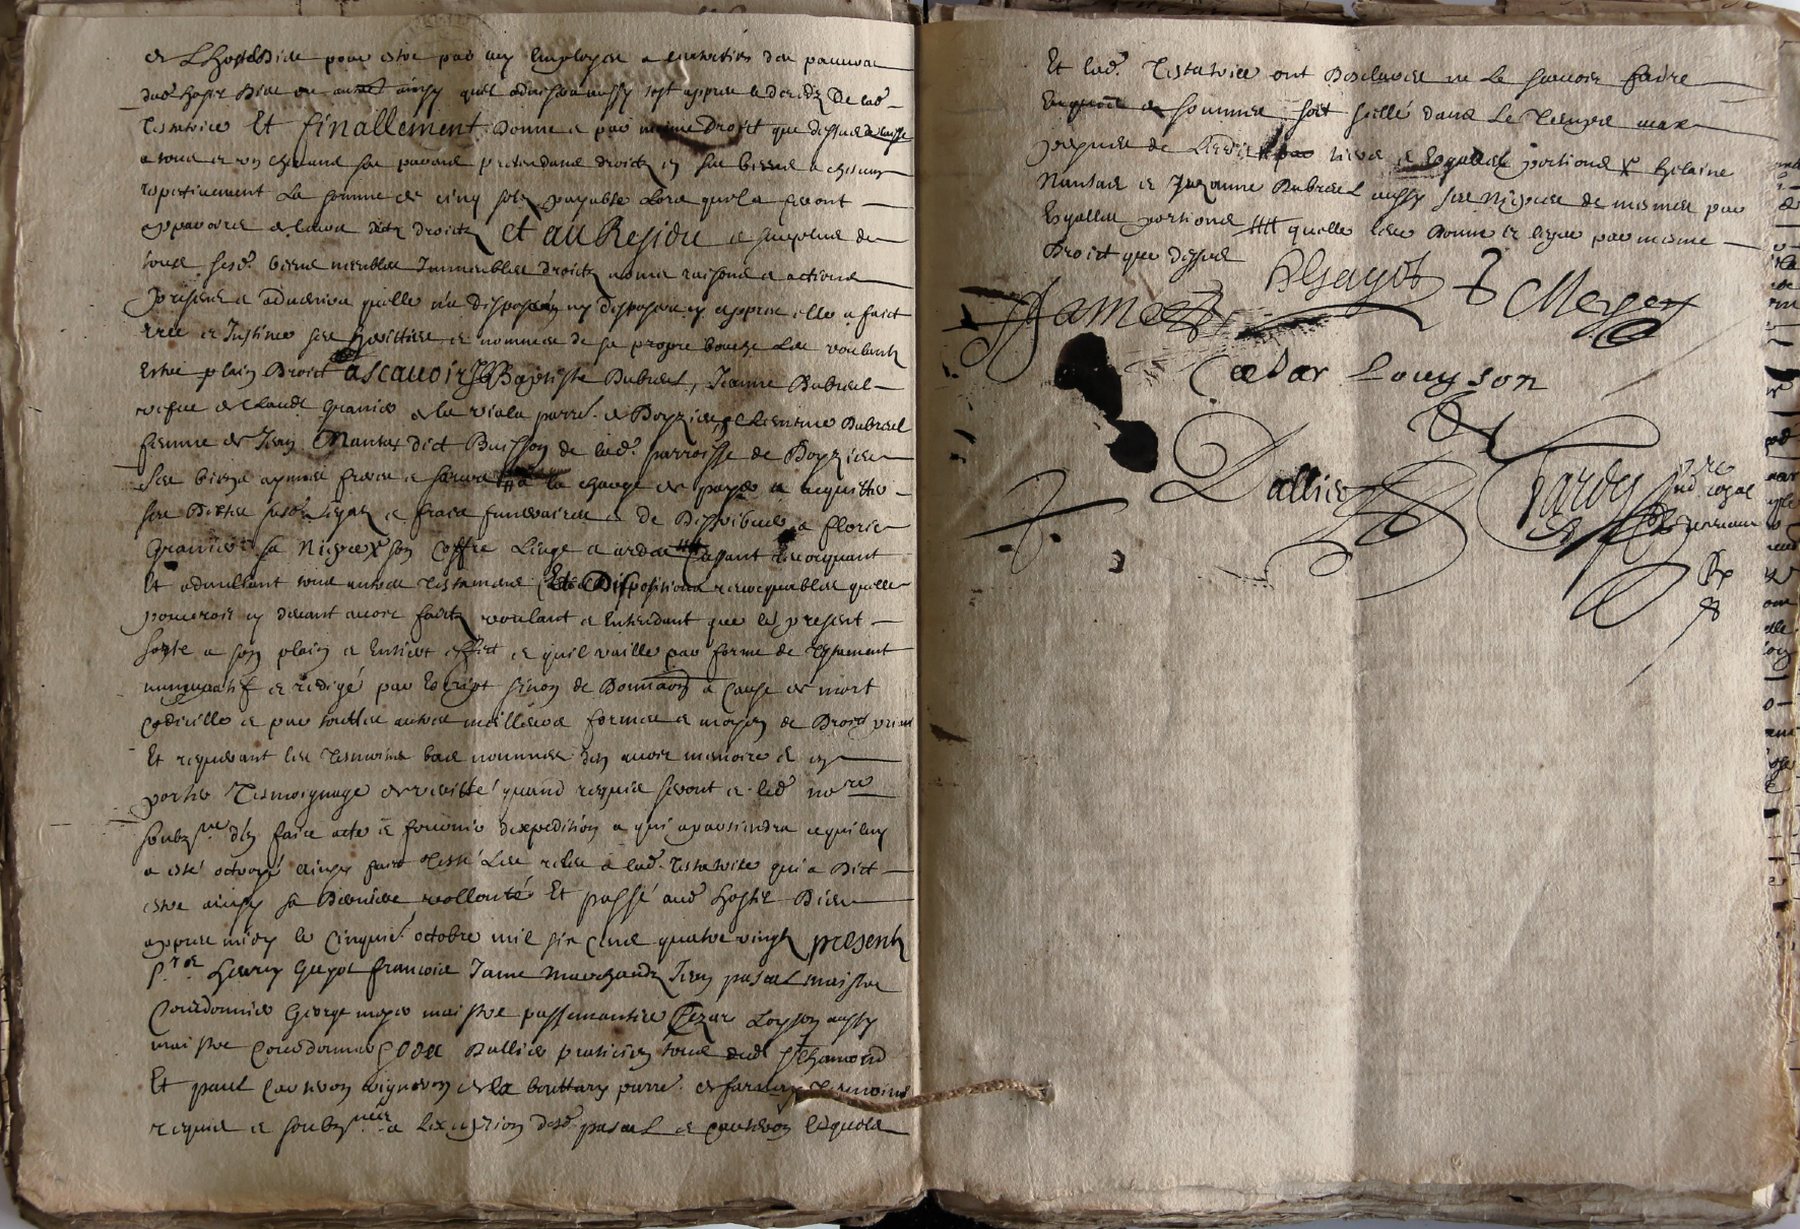 de L'hostel Dieu pour estre par luy Employee a lentretien des pauvres
dud. hostel Dieu ainsy quil advisera aussy tost appres le decedz De lad.
Testatrice Et finallement donne et par mesme Droict que dessus delaisse
a tous et un chacuns ses parans pretendans droictz en ses biens a chescun
respectivement La somme de cinq solz payable Lors quils feront
apparoire de leurs ditz droictz et au Residu et surplus de
tous sesd. biens meubles Immeubles droictz noms raisons et actions
presens et advenir quelle n'a disposéz ny disposera cy appres elle a faict
cree et Institué ses heritiers et nommés de sa propre bouche Les voulant
Estre plain Droict ascavoir Baptiste Dubreul, Jeanne Dubreul
vefve de Claude Granier de la viala parre. de Doyzieu, et Clemence Dubreul
femme de Jean Mantax dict Buisson de lad. parroisse de Doyzieu
ses biens aymés frere et soeurs a la charge de payer et acquitter
ses Dettes susd. legatz et frais funeraires et de Distribuer a Florie
Granier sa Niepce son Coffre Linge et ardes Cassant revocquant
Et adnullant tous autres Testamens Et Dispositions revocquables quelle
pourroit cy devant avoir faictz voulant et Entendant que le present
sorte a son plain et Entier effect et quil vaille par forme de Testament
nuncupatif et redigé par Escript sinon de Donnaon a Cause de mort
Codicille et par touttes autres meilleurs formes et moyen de Droict priant
Et requerant les tesmoins bas nommés d'en avoir memoire et en
porter Tesmoignage de veritté quand requis seront et led. nore
soubzné. d'en faire acte et fournir dexpedition a qui apartiendra ce quil luy
a esté octroyé ainsy faict Testé Leu releu a lad. Testatrice qui a Dict
estre ainsy sa Derniere vollonté Et passé aud. hostel Dieu
appres midy le Cinquie. octobre mil six Cens quatre vingtz presentz
Srs Henry Gayot francois Jamen marchandz Jean pascal maistre
Courdonnier George meyer maistre passemantier Cezar Loyson aussy
maistre Courdonnier Dallier praticien tous dud. St Chamond
Et paul Couneron vigneron de la bouttary parre. de farnay Tesmoins
requis et soubznés a L'exception desd. pascal et Couneron lesquels
Et lad. Testatrice ont Desclarés ne Le scavoir faire
Enquis et sommés soit scellé dans Le Temps aux
peynes de L'edit Esgalles portions x helaine
Mantax et Suzanne Dubreul aussy ses Niepces de mesmes par
Esgalles portions quelle leur donne et legue par mesme
Droict que dessus
HGayot
Jamen
Meyer
Cæsar Louyson
Dallier
Tardy
nore royal